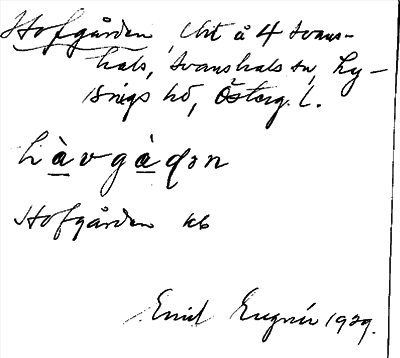 Hofgården, lht å 4 Svans-
hals, Svanshals sn, Ly-
sings hd, Österg. l.
hàvgàɖən
Hofgården kb
Emil Eugnér 1929.